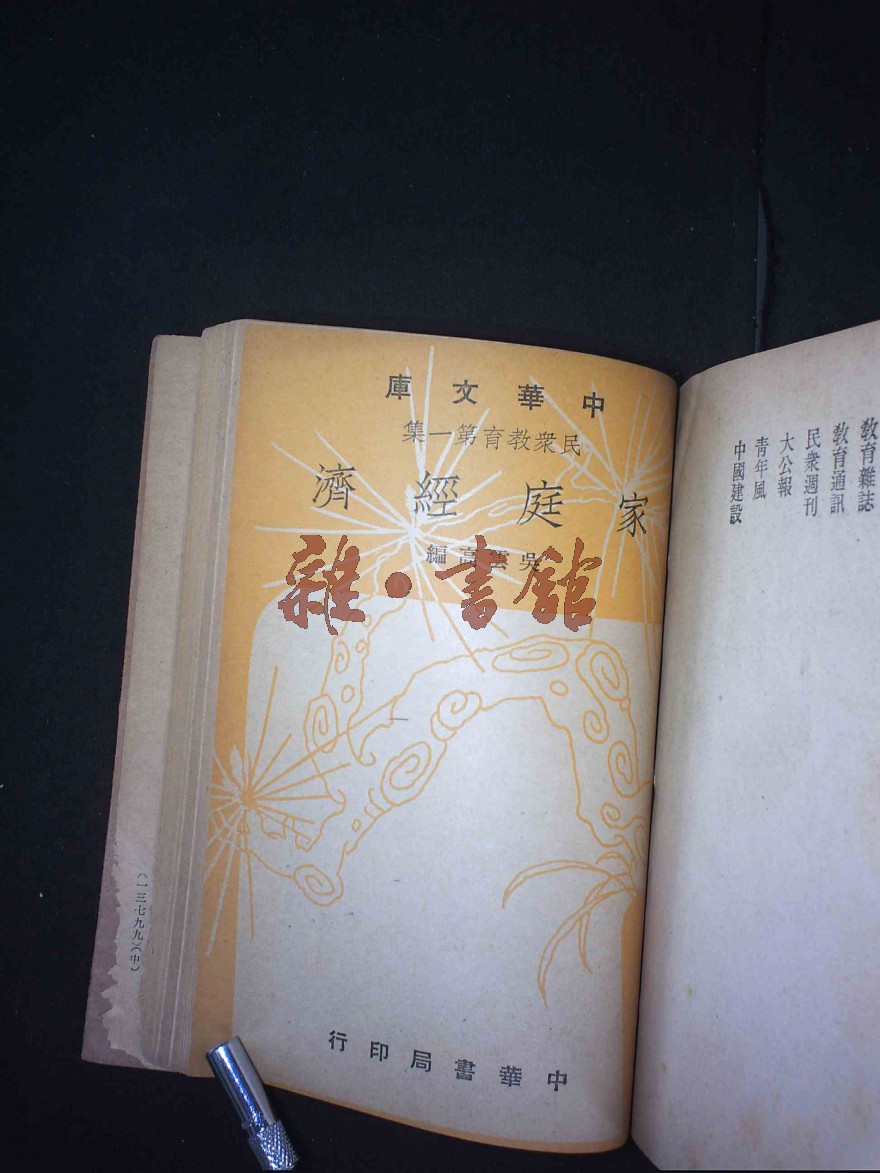 中華文庫
民衆教育第一集
家庭經濟
吳雲高編
雜·書館
中華書局印行
教育雜誌
教育通訊
民衆週刊
大公報
青年風
中國建設
(一三七九九)(中)